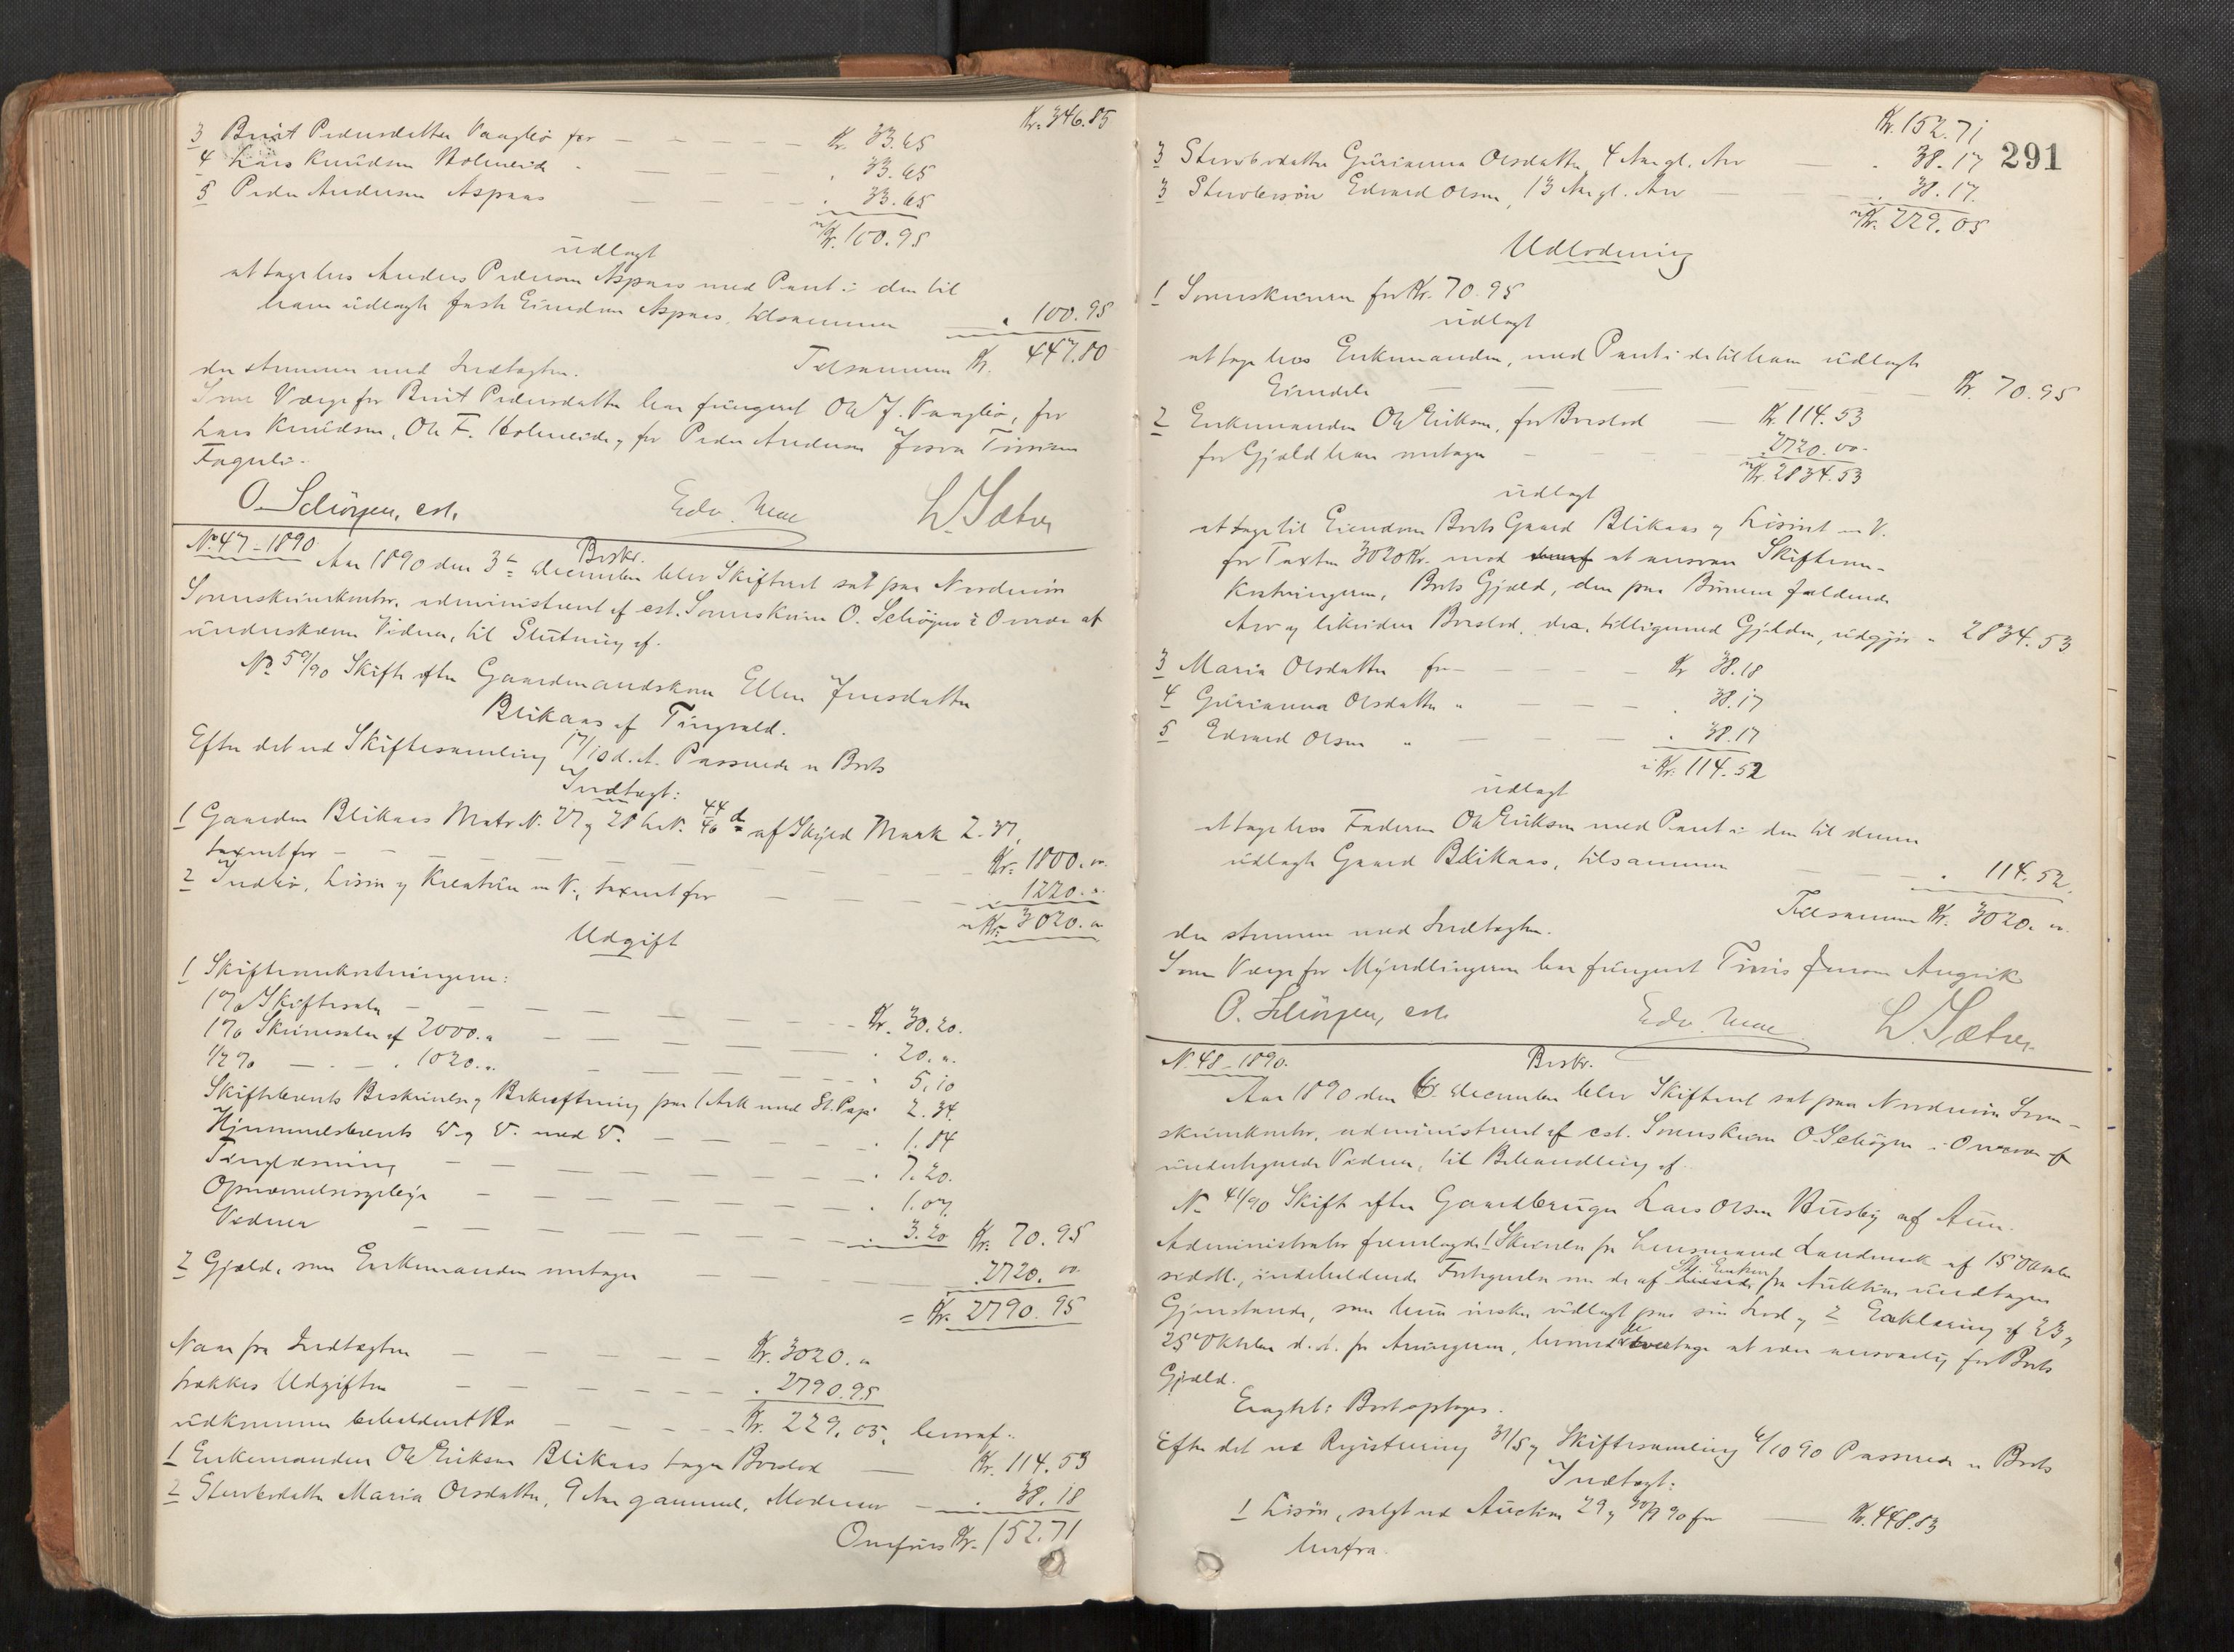 Kr. 346.85
3 Brit Pedersdatter Vaaglio for — Kr. 33.65
4 Lars Knudsen Holmeide — " 33.65
5 Peder Andersen Aspaas — " 33.65
Kr. 100.95
udlagt
at tage hos Anders Pedersen Aspaas med Pant i den til
ham udlagte faste Eiendom Aspaas, tilsammen — " 100.95
Tilsammen Kr. 447.80
der stemmer med Indtægten.
Som Værge for Brit Pedersdatter har fungeret Ole J. Vaaglio, for
Lars Knudsen, Ole F. Holmeide, for Peder Andersen
Fagerli.
O. Schörgen, cst. L. Sæter
No. 47 - 1890. Beskr.
Aar 1890 den 3de December blev Skifteret sat paa Nordmør
Sorenskriverkontor, administreret af cst. Sorenskriver O. Schögen i Overvær af
underskrevne Vidner, til Slutning af
No 59/90 Skifte efter Gaardmandskone Ellen Jensdatter
Blikaas af Tingvold.
Efter det ved Skiftesamling 17/10 d. A. Passerede er Boets
Indtægt:
1 Gaarden Blikaas Matr. N. 27 og 28 br. N. 44/46 d af Skyld Mark 2.37,
taxeret for — Kr. 1800. "
2 Indbo, Løsøre og Kreature m. V., taxeret for — " 1220. "
Kr. 3020. "
Udgift
1 Skifteomkostningerne:
1% Skiftesalær — Kr. 30.20.
1% Skriversalær af 2000. " — " 20. "
1/2% — " — " 1020. " — " 5.10
Skiftebrevets Beskrivelse og Bekræftning paa 1 Ark med St. Pap. 2.34.
Hjemmelsbrevets do og do. med do. — " 1.84
Tinglæsning — " 7.20.
Opnævnelsesgebyr — " 1.07.
Vidner — " 3.20 Kr. 70.95
2 Gjæld, som Enkemanden mottager — 2720. 00
= Kr. 2790.95
Naar fra Indtægten — Kr. 3020. "
trækkes Udgiften — " 2790.95
udkommer beholdent Bo — Kr. 229.05, hvoraf:
1 Enkemanden Ole Eriksen Blikaas tager Boeslod — Kr. 114.53
2 Stervbodatter Maria Olsdatter, 9 Aar gammel, Mødrenearv — " 38.18
Overføres Kr. 152.71
Kr. 152.71
291
3 Stervbodatter Gurianna Olsdatter, 4 Aar gl. Arv — " 38.17
3 Stervbosøn Edvard Olsen, 13 Aar gl. Arv — " 38.17.
Kr. 229.05
Udlodning
1 Sorenskriveren for Kr. 70.95
udlagt
at tage hos Enkemanden, med Pant i de til ham udlagte
Eiendele — Kr. 70.95
2 Enkemanden Ole Eriksen, for Boeslod — Kr. 114.53
for Gjæld han mottager — " 2720.00
Kr. 2834.53
udlagt
at tage til Eiendom Boets Gaard Blikaas og Løsøret m. V.
for Taxten 3020 Kr. mod at ansvare Skifteom-
kostningerne, Boets Gjæld, den paa Børnene faldende
Arv og likvidere Boeslod, der, tilligemed Gjælden, udgjør " 2834.53
3 Maria Olsdatter for — Kr 38.18
4 Gurianna Olsdatter " — " 38.17
5 Edvard Olsen " — " 38.17
Kr. 114.52
udlagt
at tage hos Faderen Ole Eriksen med Pant i den til denne
udlagte Gaard Blikaas, tilsammen — " 114.52.
Tilsammen Kr. 3020. "
der stemmer med Indtægten.
Som Værge for Myndlingerne har fungeret Tønis Jenson Angvik
O. Schörgen, cst. L. Sæter
N. 48 - 1890. Beskr.
Aar 1890 den 6. December blev Skifteret sat paa Nordmør Soren-
skriverkontor, administreret af cst. Sorenskriver O. Schögen i Overvær af
undertegnede Vidner, til Behandling af
No 41/90 Skifte efter Gaardbruger Lars Olsen Husby af Aure.
Administrator fremlagde 1 Skrivelse fra Lensmand Landmark af 15 Oktober
sidstl., indeholdende Fortegnelse om de af Enken fra Auktion undtagne
Gjenstande, som hun ønsker udlagt paa sin Lod, og 2 Erklæring af 23,
25 Oktober d. A. fra Arvingerne, hvori de vedtage at være ansvarlig for Boets
Gjæld.
Eragtet: Boet optages.
Efter det ved Registrering 31/5 og Skiftesamling 6/10 90 Passerede er Boets
Indtægt:
1 Løsøre, solgt ved Auction 29 og 30/9 90 for — Kr. 448.83
herfra